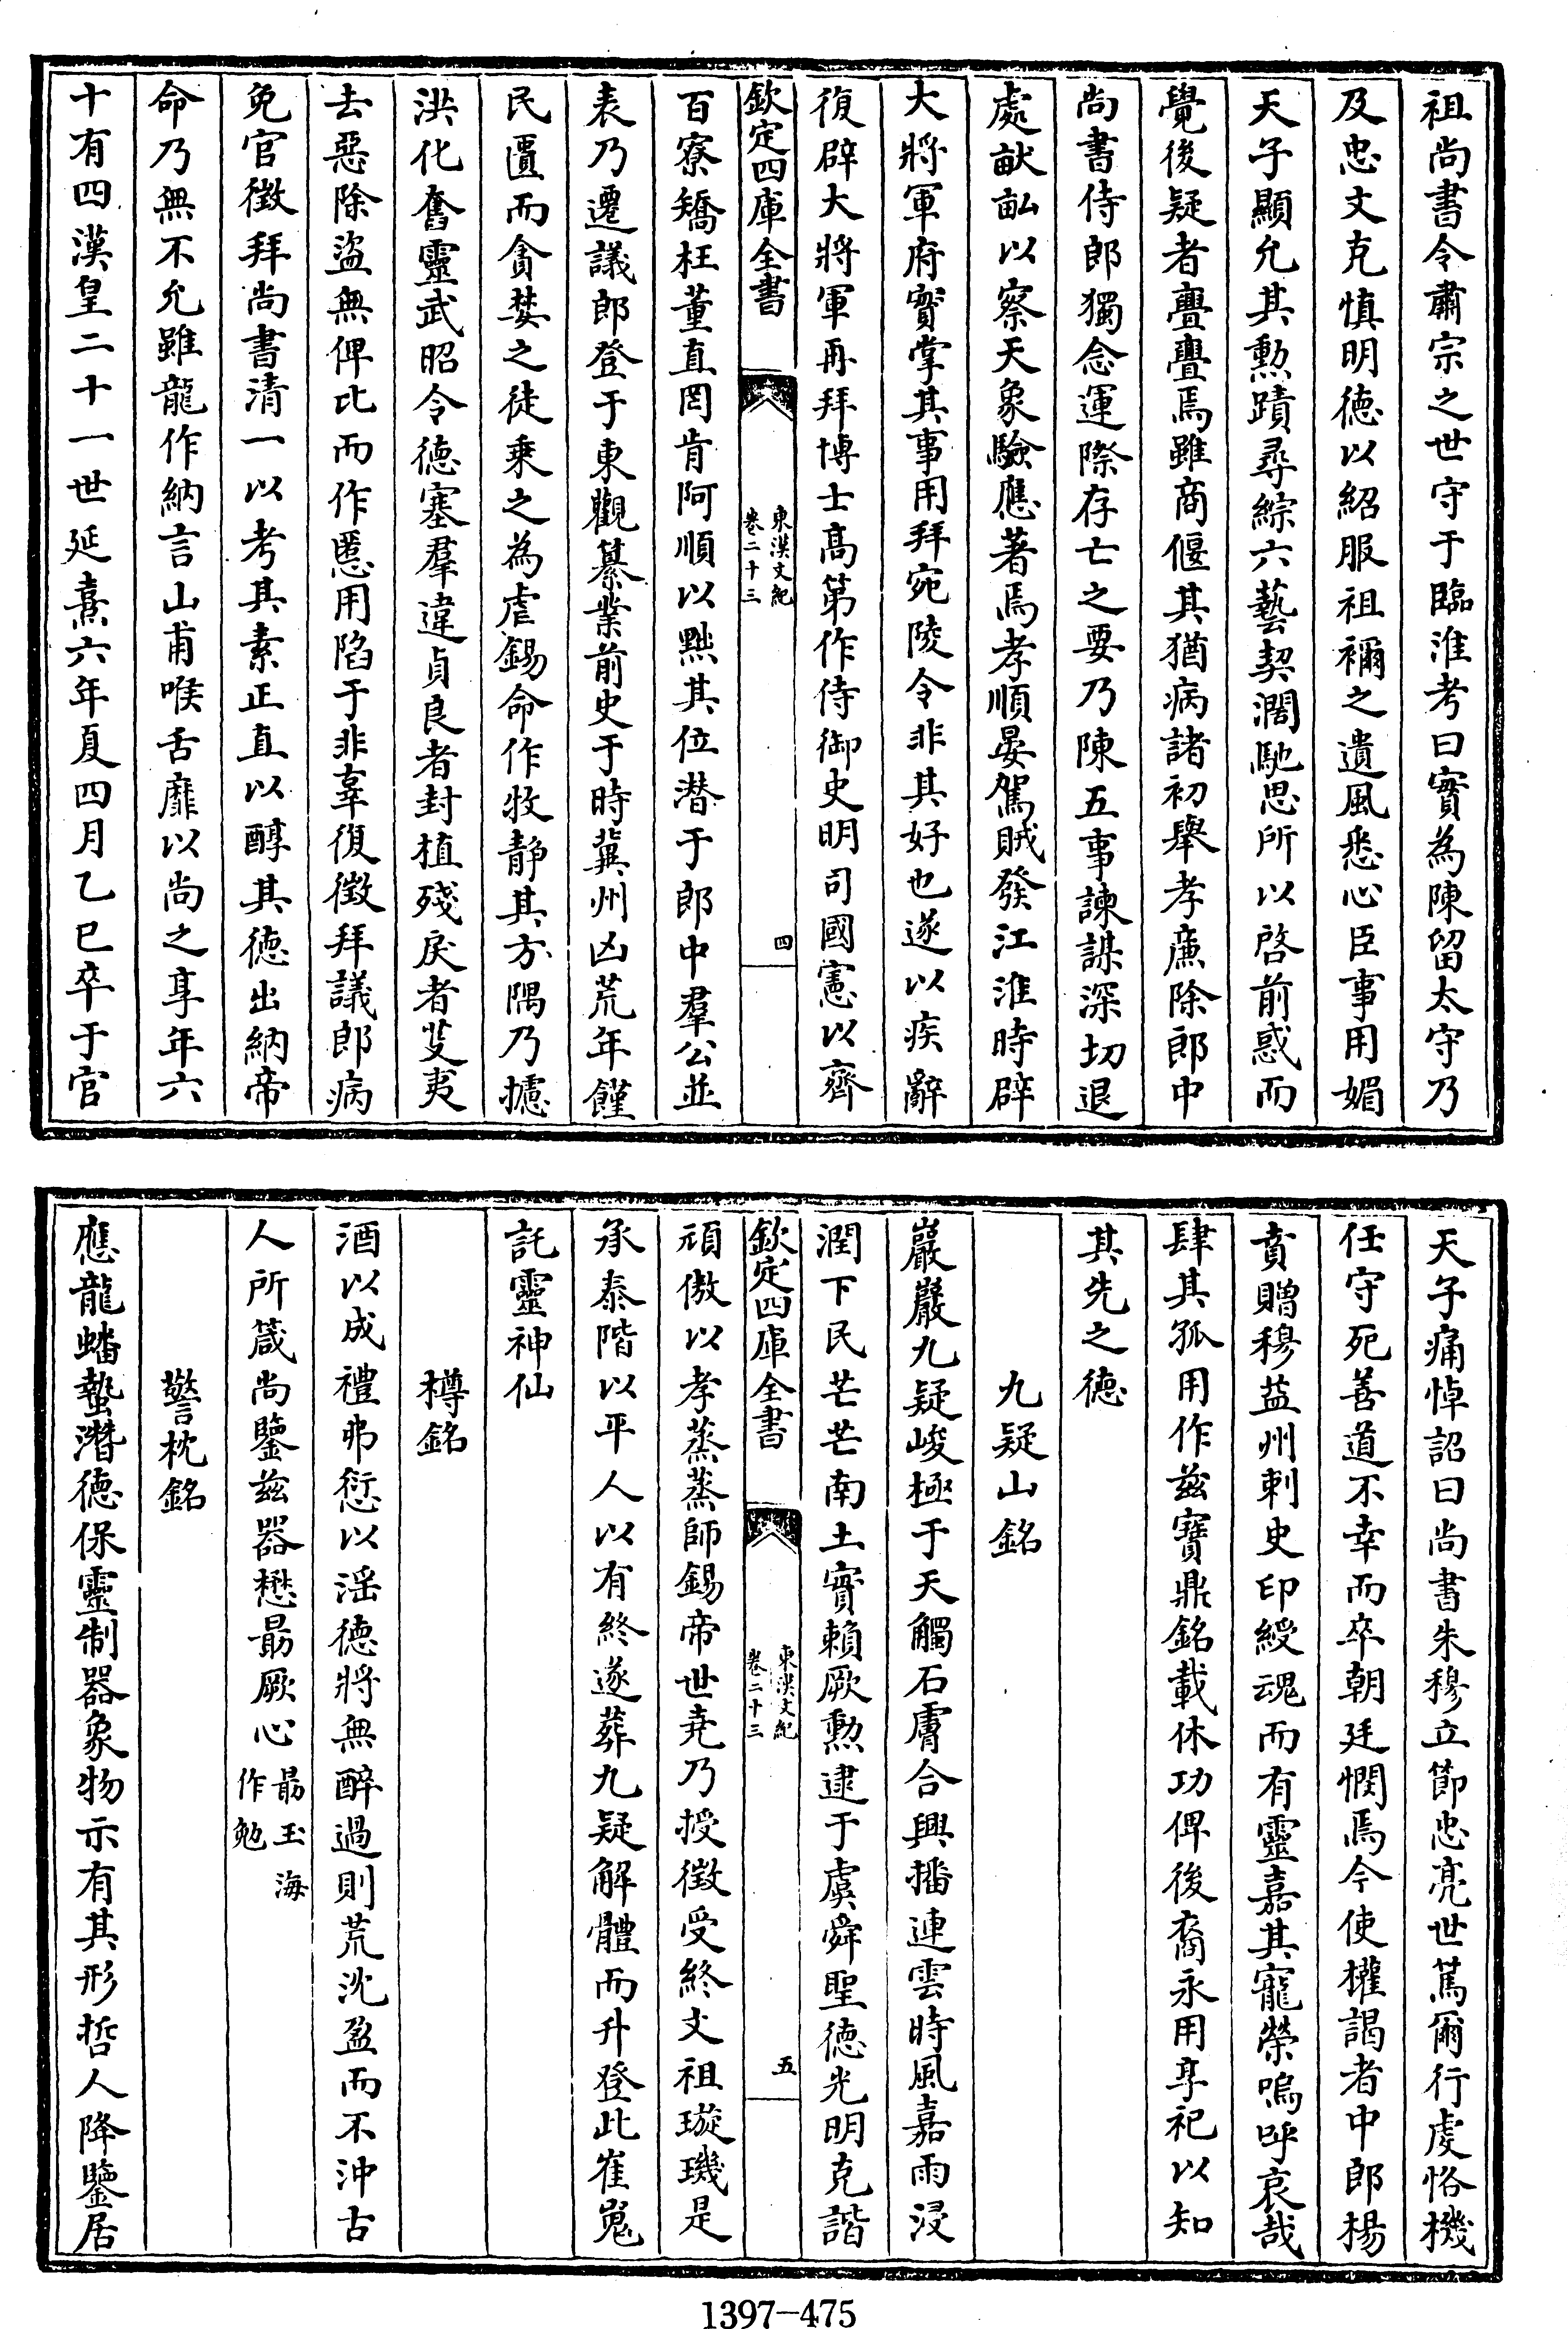 祖尚書令肅宗之世守于臨淮考曰實為陳留太守乃
及忠文克慎明徳以紹服祖禰之遺風悉心臣事用媚
天子顯允其勲蹟尋綜六藝契濶馳思所以啓前惑而
覺後疑者亹亹焉雖商偃其猶病諸初舉孝廉除郎中
尚書侍郎獨念運際存亡之要乃陳五事諫謀深切退
處畎畝以察天象驗應著焉孝順晏駕賊發江淮時辟
大將軍府實掌其事用拜宛陵令非其好也遂以疾辭
復辟大將軍再拜博士髙第作侍御史明司國憲以齊
欽定四庫全書
東漢文紀
卷二十三
四
百寮矯枉董直罔肯阿順以黜其位潛于郎中羣公並
表乃遷議郎登于東觀纂業前史于時冀州凶荒年饉
民匱而貪婪之徒乗之為虐錫命作牧静其方隅乃攄
洪化奮靈武昭令徳塞羣違貞良者封植殘戾者芟夷
去惡除盜無俾比而作慝用陷于非辜復徵拜議郎病
免官徵拜尚書清一以考其素正直以醇其徳出納帝
命乃無不允雖龍作納言山甫喉舌靡以尚之享年六
十有四漢皇二十一世延熹六年夏四月乙巳卒于官
天子痛悼詔曰尚書朱穆立節忠亮世篤爾行虔恪機
任守死善道不幸而卒朝廷憫焉今使權謁者中郎楊
賁贈穆益州刺史印綬魂而有靈嘉其寵榮嗚呼哀哉
肆其孤用作兹寶鼎銘載休功俾後裔永用享祀以知
其先之徳
九疑山銘
巖巖九疑峻極于天觸石膚合興播連雲時風嘉雨浸
潤下民芒芒南土實賴厥勲逮于虞舜聖徳光明克諧
欽定四庫全書
東漢文紀
卷二十三
五
頑傲以孝蒸蒸師錫帝世堯乃授徵受終文祖璇璣是
承泰階以平人以有終遂葬九疑解體而升登此崔嵬
託靈神仙
樽銘
酒以成禮弗愆以淫徳將無醉過則荒沈盈而不沖古
人所箴尚鑒兹器懋朂厥心朂玉海作勉
警枕銘
應龍蟠蟄潛徳保靈制器象物示有其形哲人降鑒居
1397-475